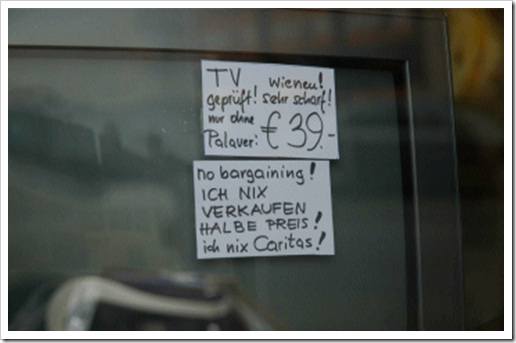 TV wieneu!
geprüft! sehr scharf!
nur ohne
Palaver: € 39.-
no bargaining!
ICH NIX
VERKAUFEN
HALBE PREIS!
ich nix Caritas!